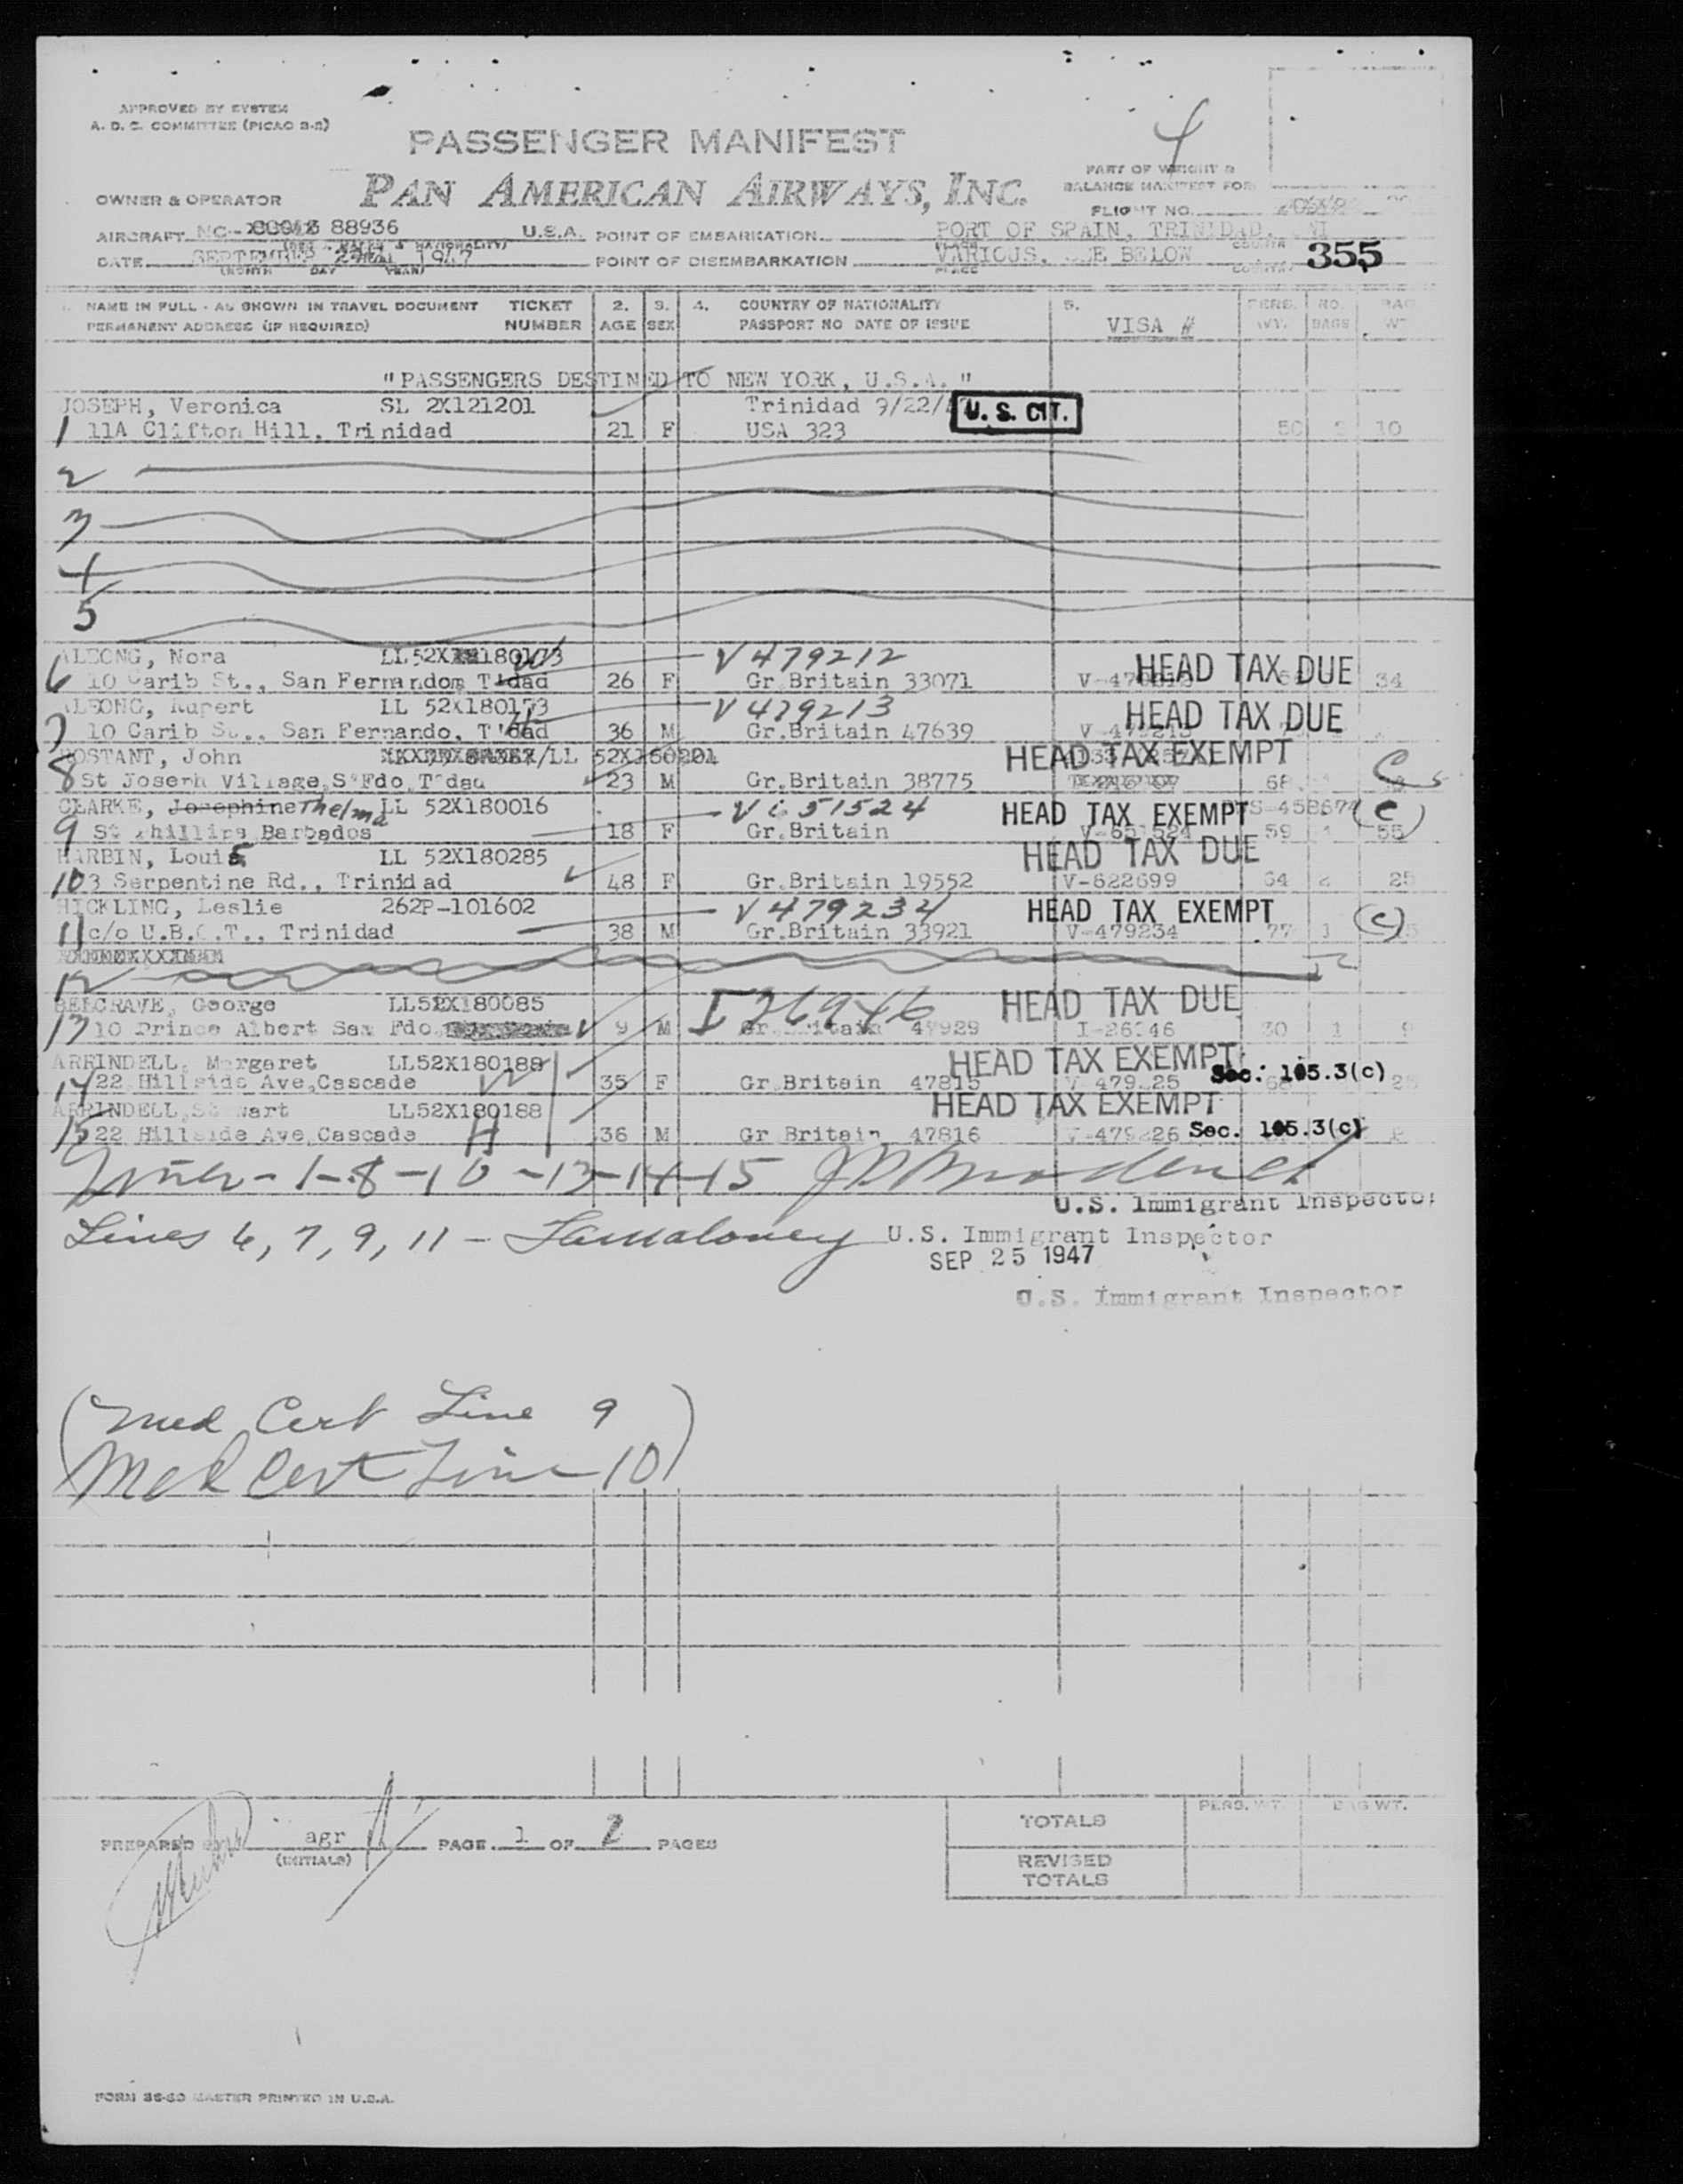 APPROVED BY SYSTEM
A. D. C. COMMITTEE (PICAO 2-2)
4
PASSENGER MANIFEST
PART OF WEIGHT &
BALANCE MANIFEST FOR
OWNER & OPERATOR PAN AMERICAN AIRWAYS, INC.
FLIGHT NO.
AIRCRAFT NC- 88936 U.S.A. POINT OF EMBARKATION PORT OF SPAIN, TRINIDAD,
DATE SEPTEMBER 1947 POINT OF DISEMBARKATION VARIOUS, SEE BELOW 355
(MONTH DAY YEAR) PLACE COUNTRY
NAME IN FULL - AS SHOWN IN TRAVEL DOCUMENT TICKET 2. 3. 4. COUNTRY OF NATIONALITY 5. PERS. NO. BAG
PERMANENT ADDRESS (IF REQUIRED) NUMBER AGE SEX PASSPORT NO DATE OF ISSUE VISA # WT. BAGS WT
"PASSENGERS DESTINED TO NEW YORK, U.S.A."
JOSEPH, Veronica SL 2X121201 Trinidad 9/22/ U. S. CIT.
1 11A Clifton Hill, Trinidad 21 F USA 323 50 10
2
3
4
5
ALEONG, Nora LL 52X 180173 V479212 HEAD TAX DUE
6 10 Carib St., San Fernandom T'dad 26 F Gr.Britain 33071 34
ALEONG, Rupert LL 52X180173 V479213 HEAD TAX DUE
7 10 Carib St., San Fernando, T'dad 36 M Gr.Britain 47639
ROSTANT, John /LL 52X160201 HEAD TAX EXEMPT
8 St Joseph Village, S'Fdo, T'dad 23 M Gr.Britain 38775 68
CLARKE, Josephine Thelma LL 52X180016 V651524 HEAD TAX EXEMPT (c)
9 St Phillips Barbados 18 F Gr.Britain V-651524 59 1 55
HARBIN, Louis LL 52X180285 HEAD TAX DUE
10 3 Serpentine Rd., Trinidad 48 F Gr.Britain 19552 V-622699 64 2 25
HICKLING, Leslie 262P-101602 V479234 HEAD TAX EXEMPT (c)
11 c/o U.B.O.T., Trinidad 38 M Gr.Britain 33921 V-479234 77 1
12
BELGRAVE, George LL52X180085 I26946 HEAD TAX DUE
13 10 Prince Albert San Fdo. 9 M Gr. Britain 47929 30 1 9
ARRINDELL, Margaret LL52X180188 HEAD TAX EXEMPT
14 22 Hillside Ave, Cascade 35 F Gr Britain 47815 Sec. 105.3(c)
ARRINDELL, Stewart LL52X180188 HEAD TAX EXEMPT
15 22 Hillside Ave, Cascade 36 M Gr Britain 47816 Sec. 105.3(c)
Lines - 1-8-10-13-14-15
U.S. Immigrant Inspector
Lines 6, 7, 9, 11 - U.S. Immigrant Inspector
SEP 25 1947
U.S. Immigrant Inspector
(Med Cert Line 9)
Med Cert Line 10
TOTALS PERS. WT. BAG WT.
PREPARED BY agr PAGE 1 OF 2 PAGES
(INITIALS)
REVISED
TOTALS
FORM 36-60 MASTER PRINTED IN U.S.A.